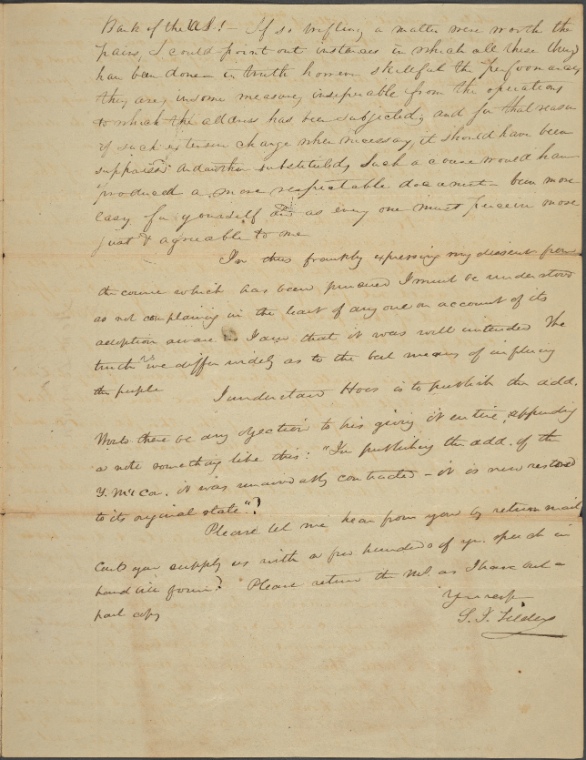 Bank of the U.S.! — If so trifling a matter were worth the
pains, I could point out instances in which all these things
have been done — in truth however skillful the performances
they are, in some measure, inseparable from the operations
to which the address has been subjected, and for that reason
if such extensive change when necessary, it should have been
suppressed and another substituted. Such a course would have
produced a more respectable document — been more
easy for yourself and as every one must perceive more
just & agreable to me
In thus frankly expressing my dissent from
the course which has been pursued I must be understood
as not complaining in the least of any one on account of its
adoption aware as I am that it was well intended The
truth is we differ widely as to the best means of influencing
the people
I understand Hoes is to publish the add.
Would there be any objection to his giving it entire, appending
a note something like this: "In publishing the add. of the
Y. Men &c. it was unavoidably contracted — it is now restored
to its original state"?
Please let me hear from you by return mail
Could you supply us with a few hundreds of yr. speech in
hand bill form? Please return the ms. as I have but a
part copy
Yrs resp.
S. J. Tilden